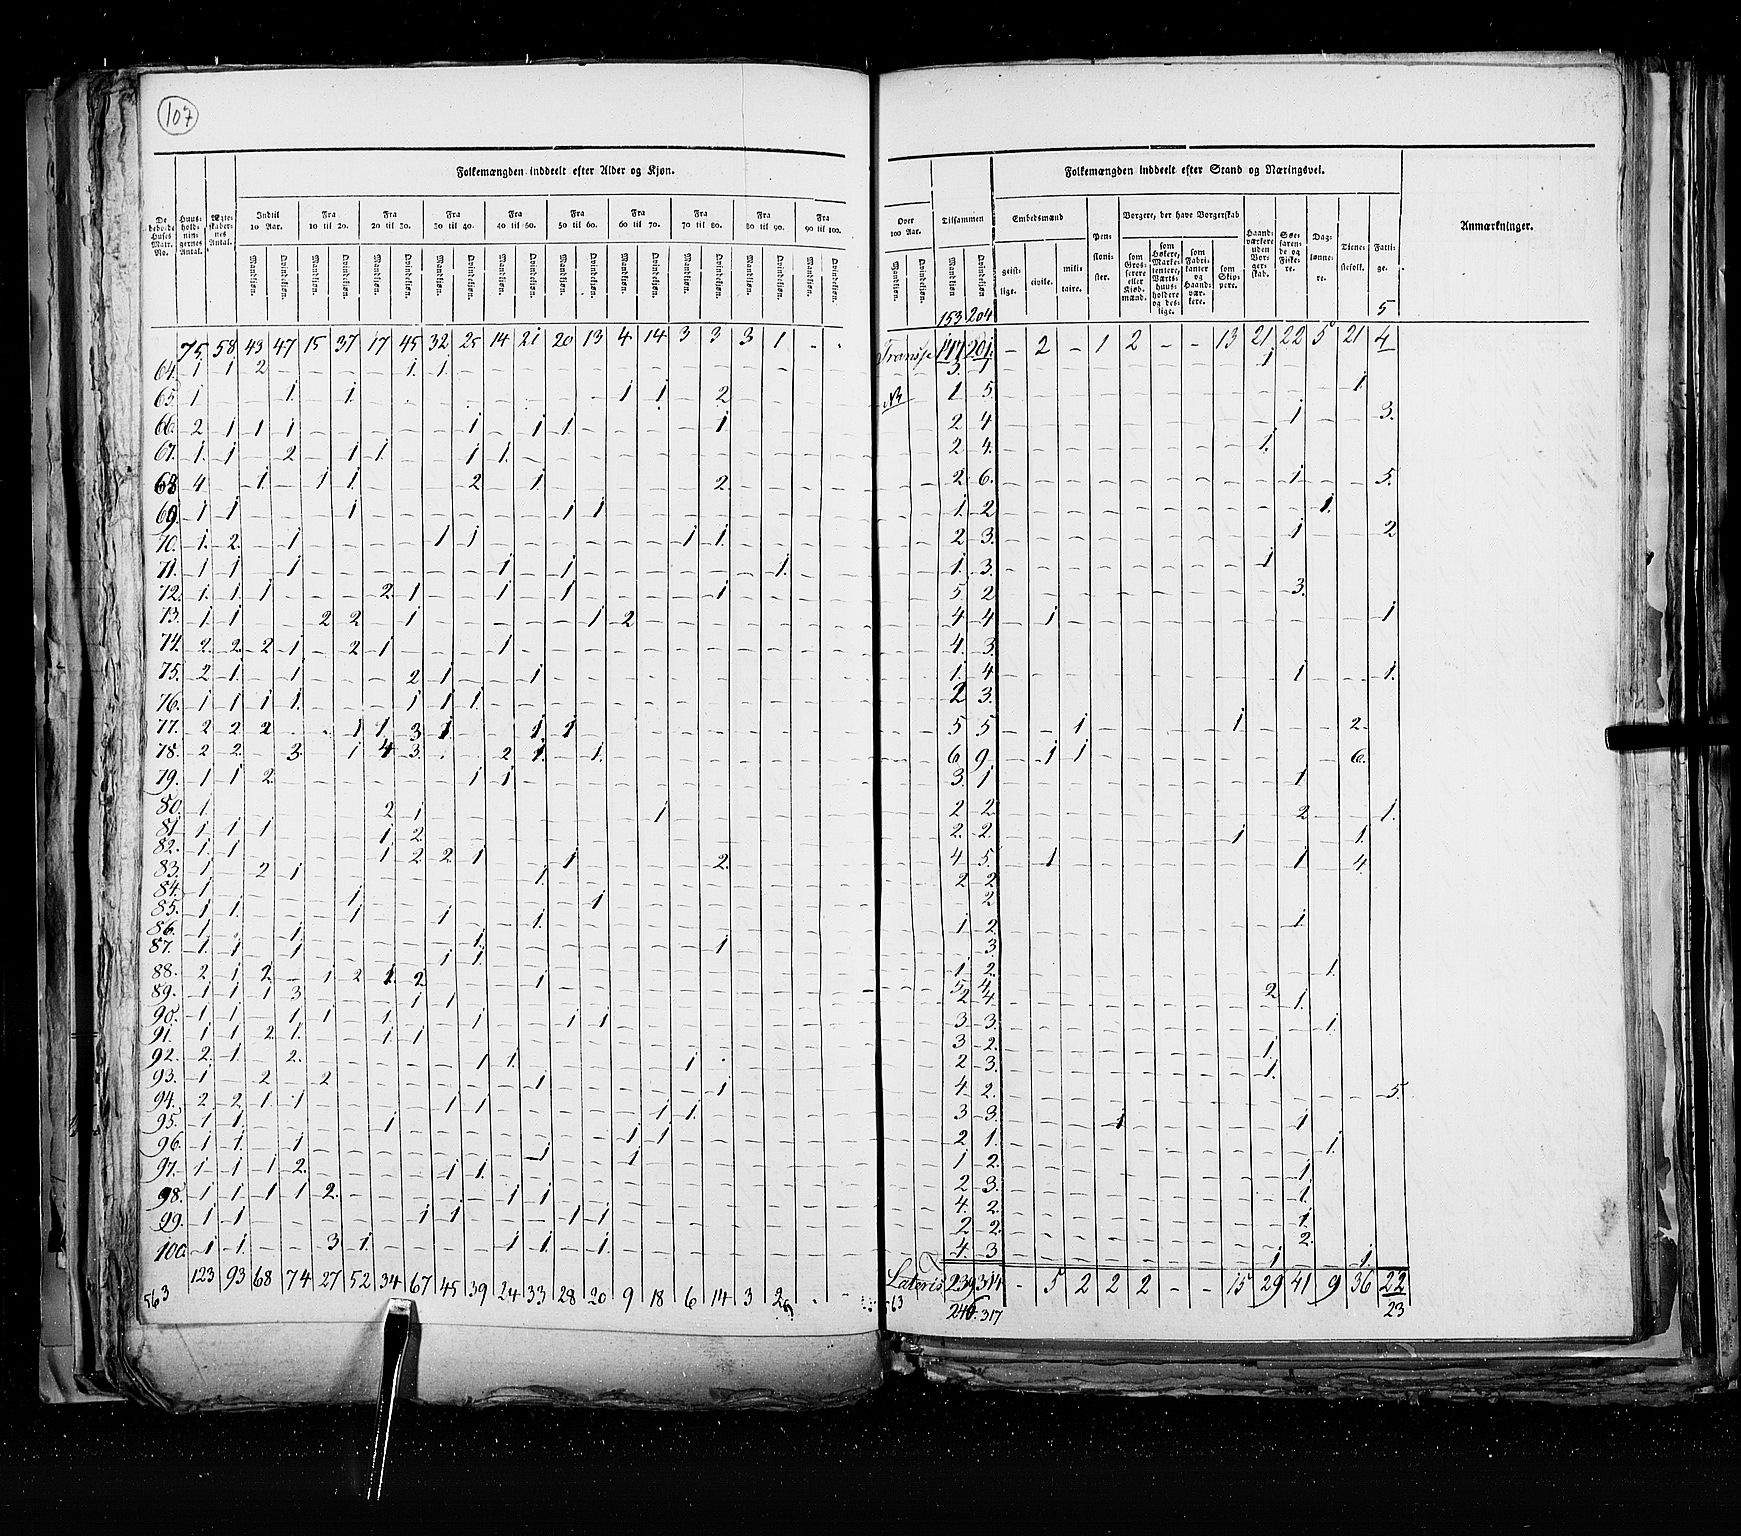 107
Folkemængden inddeelt efter Alder og Kjøn.
De beboede Huses Matr. No.
Huus-holdnin-gernes Antal.
Ægte-skaber-nes Antal.
Indtil 10 Aar.
Fra 10 til 20.
Fra 20 til 30.
Fra 30 til 40.
Fra 40 til 50.
Fra 50 til 60.
Fra 60 til 70.
Fra 70 til 80.
Fra 80 til 90.
Fra 90 til 100.
Mandkjøn. Qvindekjøn. Mandkjøn. Qvindekjøn. Mandkjøn. Qvindekjøn. Mandkjøn. Qvindekjøn. Mandkjøn. Qvindekjøn. Mandkjøn. Qvindekjøn. Mandkjøn. Qvindekjøn. Mandkjøn. Qvindekjøn. Mandkjøn. Qvindekjøn. Mandkjøn. Qvindekjøn.
75. 58 43 47 15 37 17 45 32 25 14 21 20 13 4 14 3 3 3 1 - -
64. 1 1 2 - - - - 1. 1.
65. 1 1. 1. 1 1. 2
66. 2 1 1 1 1 1 1 1
67. 1. 1 2 1 1. 1 1.
68 4 1. 1 1 2 1. 2.
69. 1 1 1 1 1
70. 1. 2. 1 1 1 1 1.
71. 1 1 1 1 1 1.
72. 1. 1. 1 2. 1 1 1 1
73. 1 1 2 2 1 1 2
74. 2 2. 2 1 2 1 1
75. 2 1. 1 2 1 1
76. 1 1 1 1. 1 1 1.
77. 2 2 2 1 1. 3 1 1 1
78. 2 2. 3. 1 4 3. 2 1. 1.
79. 1 1 2. 1 1
80. 1 2 1 1
81. 1. 1 1 1 2.
82. 1. 1 1 2 2 1 1 2.
83. 1 2 1 1.
84. 1 1 1
85. 1 1. 1 1 1.
86. 1 1 1.
87. 1. 1 1 1 1. 1
88. 2 1 2. 1 2 1. 2 1
89. 1 1 1 3 1 1
90. 1 1 1 1 1 1 1 1
91. 1 1 2 1. 1 1
92. 2. 1 2. 1 1 1
93. 1 2 2 1 1
94. 2 2 1. 1 1 1 1 1.
95. 1 1. 1 1 1
96. 1 1. 1 1 1
97. 1 1 1 2. 1 1.
98. 1 1 1 1 2. 1 1
99. 1 1 1 1 1 1
100. 1 1. 3 1. 1 1. 1.
123 93 68 74 27 52 34 67 45 39 24 33 28 20 9 18 6 14 3 2 - -
563
Over 100 Aar.
Tilsammen
Mandkjøn. Qvindekjøn. Mandkjøn Qvindekjøn
Folkemængden inddeelt efter Stand og Næringsvei.
Embedsmænd
geist-lige. civile. mili-taire.
Pen-sioni-ster.
Borgere, der have Borgerskab
som Gros-serere eller Kiøb-mænd.
som Høkere, Marke-tentere, Værts-huus-holdere og des-lige.
som Fabri-kanter og Haand-vær-kere.
som Skip-pere.
Haand-værkere uden Bor-ger-skab.
Søe-faren-de og Fiske-re.
Dag-lønne-re.
Tiene-stefolk.
Fatti-ge.
Anmærkninger.
153 204 5
Transp 147 201. - 2 - 1 2 - - 13 21 22 5 21 4
3. 1 1
NB 1 5. 1.
2 4 1 3.
2 4. 1.
2 6. 1 5.
1. 2 1.
2 3. 1 2
1. 3. 1
5. 2 3.
4 4 1 1
4. 3.
1. 4 1 1.
2 3.
5 5 1 1 2
6 9 1 1 6.
3. 1 1
2 2. 2 1.
2. 2. 1 1.
4 5. 1 1 4.
2 2.
2
1 2. 1
3
1 2. 1.
5 4 2
2 4 1.
3 3. 1.
3 2. 1.
2 3. 1.
4. 2. 5.
3 3. 1 1
2 1. 1.
1 2. 1
2 3. 1.
4. 2. 1.
2 2. 2.
4. 3 1 1
Lateris 239 314 - 5 2 2 2 - - 15 29 41 9 36 22
563 246. 317 23